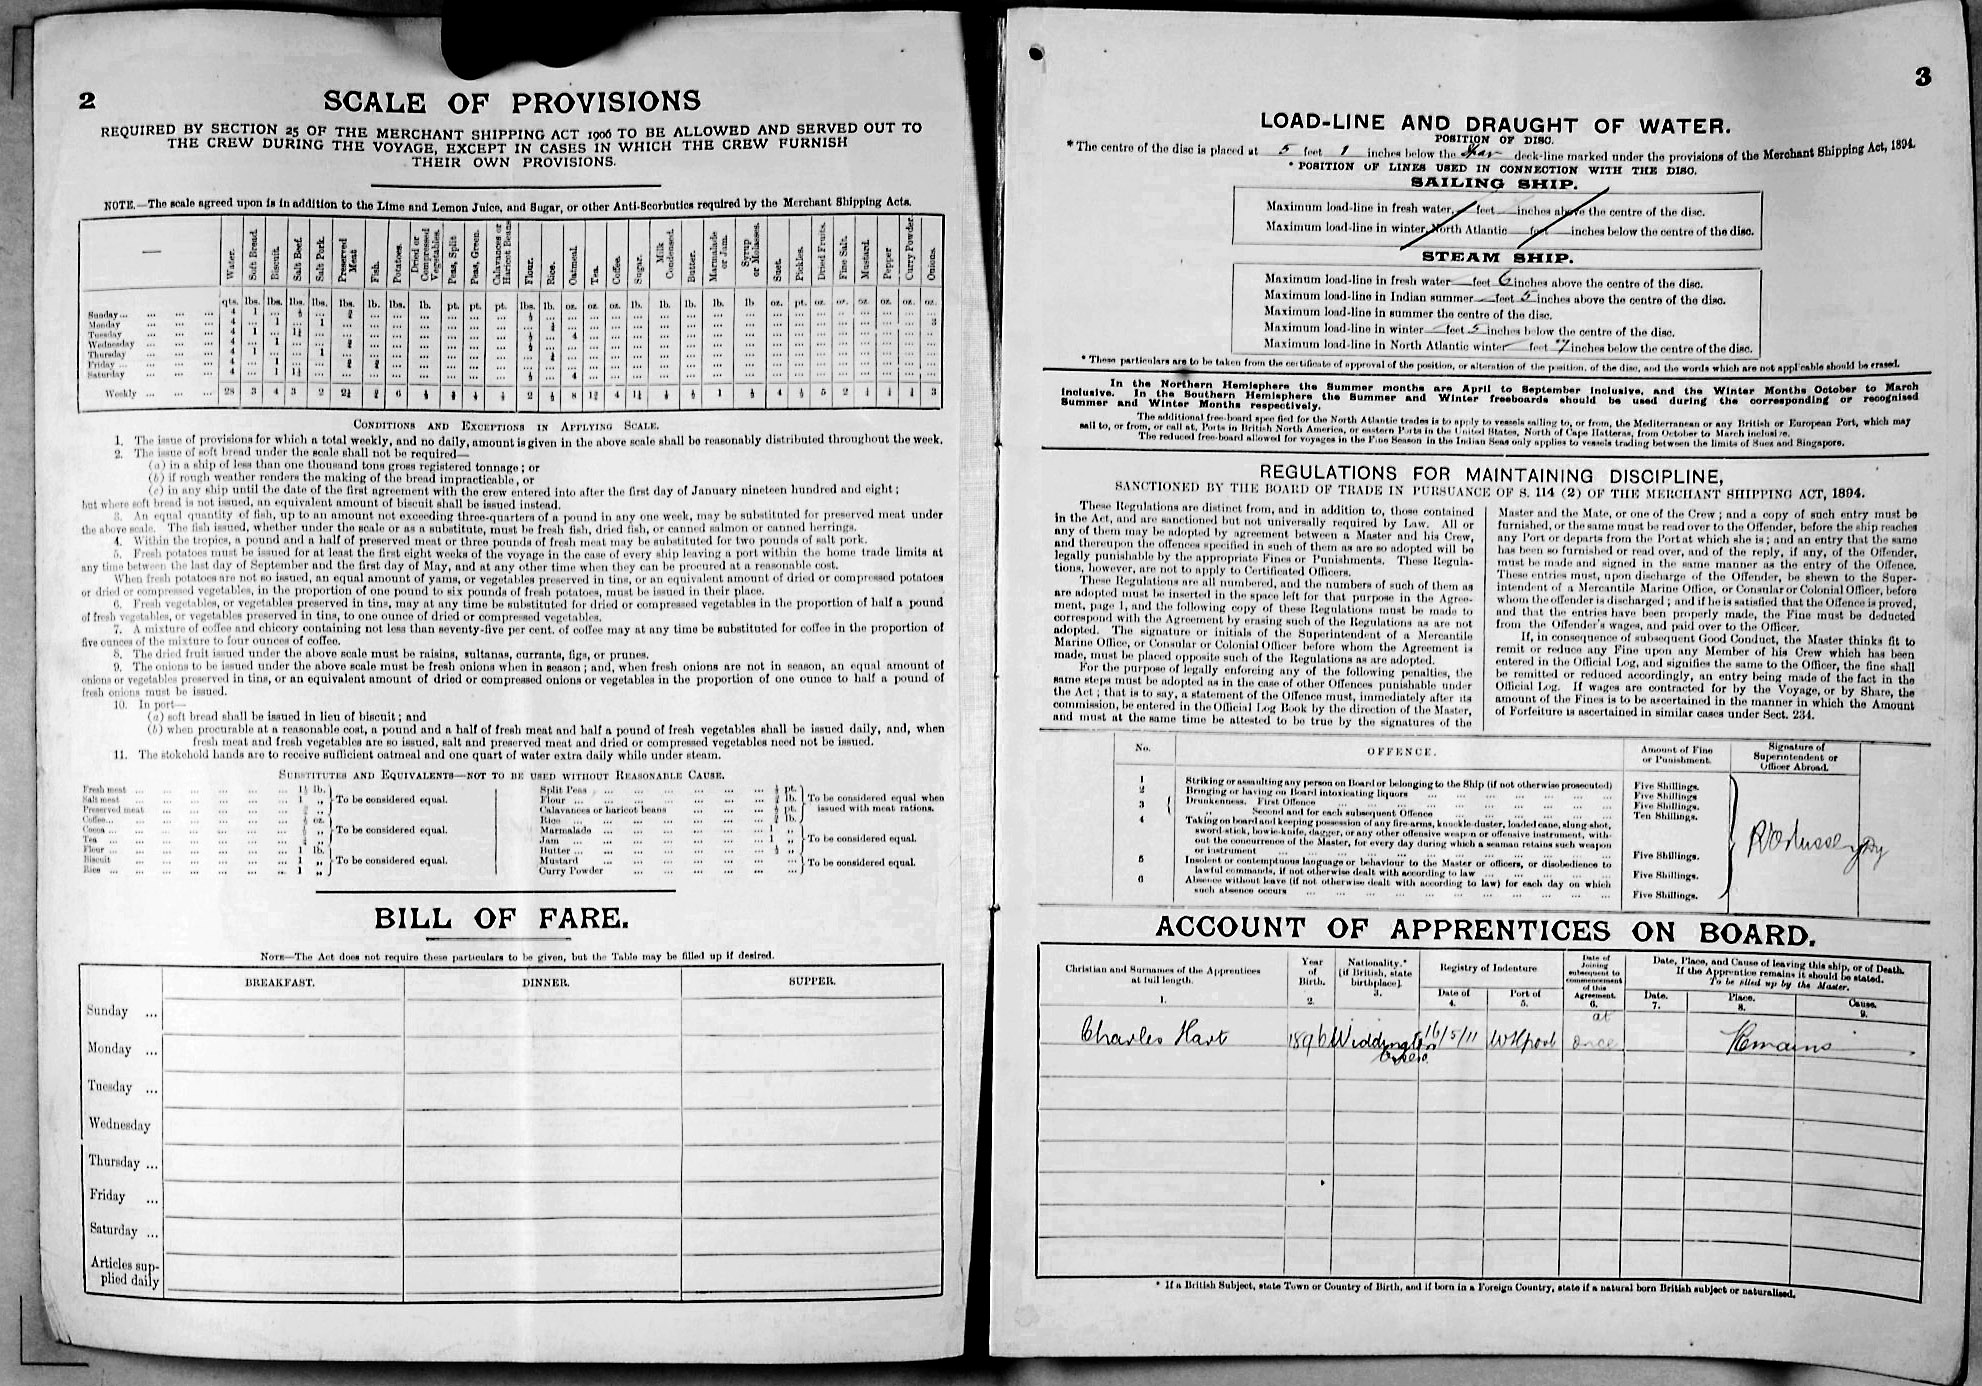 2
SCALE OF PROVISIONS
REQUIRED BY SECTION 25 OF THE MERCHANT SHIPPING ACT 1906 TO BE ALLOWED AND SERVED OUT TO
THE CREW DURING THE VOYAGE, EXCEPT IN CASES IN WHICH THE CREW FURNISH
THEIR OWN PROVISIONS.
NOTE.—The scale agreed upon is in addition to the Lime and Lemon Juice, and Sugar, or other Anti-Scorbutics required by the Merchant Shipping Acts.
— Water. Soft Bread. Biscuit. Salt Beef. Salt Pork. Preserved Meat Fish. Potatoes. Dried or Compressed Vegetables. Peas, Split Peas, Green. Calavances or Haricot Beans Flour. Rice. Oatmeal. Tea. Coffee. Sugar. Milk Condensed. Butter. Marmalade or Jam. Syrup or Molasses. Suet. Pickles. Dried Fruits. Fine Salt. Mustard. Pepper Curry Powder. Onions.
qts. lbs. lbs. lbs. lbs. lbs. lb. lbs. lb. pt. pt. pt. lbs. lb. oz. oz. oz. lb. lb. lb. lb. lb oz. pt. oz. oz. oz. oz. oz. oz.
Sunday... ... ... ... 4 1 ... ½ ... ¾ ... ½
Monday ... ... ... 4 ... 1 ... 1 ... ½ ... 3
Tuesday ... ... ... 4 1 ... 1½ ... ½ ... 4
Wednesday ... ... ... 4 ... 1 ... ¾ ... ½
Thursday ... ... ... 4 1 ... 1 ... ½
Friday ... ... ... ... 4 ... 1 ... ¾ ¾
Saturday ... ... ... 4 ... 1 1½ ... ½ ... 4
Weekly ... ... ... 28 3 4 3 2 2¼ ¾ 6 ½ ⅔ ⅓ ⅓ 2 ½ 8 1¾ 4 1¼ ⅓ ½ 1 ½ 4 ½ 5 2 ¼ ¼ ¼ 3
CONDITIONS AND EXCEPTIONS IN APPLYING SCALE.
1. The issue of provisions for which a total weekly, and no daily, amount is given in the above scale shall be reasonably distributed throughout the week.
2. The issue of soft bread under the scale shall not be required—
(a) in a ship of less than one thousand tons gross registered tonnage; or
(b) if rough weather renders the making of the bread impracticable, or
(c) in any ship until the date of the first agreement with the crew entered into after the first day of January nineteen hundred and eight;
but where soft bread is not issued, an equivalent amount of biscuit shall be issued instead.
3. An equal quantity of fish, up to an amount not exceeding three-quarters of a pound in any one week, may be substituted for preserved meat under
the above scale. The fish issued, whether under the scale or as a substitute, must be fresh fish, dried fish, or canned salmon or canned herrings.
4. Within the tropics, a pound and a half of preserved meat or three pounds of fresh meat may be substituted for two pounds of salt pork.
5. Fresh potatoes must be issued for at least the first eight weeks of the voyage in the case of every ship leaving a port within the home trade limits at
any time between the last day of September and the first day of May, and at any other time when they can be procured at a reasonable cost.
When fresh potatoes are not so issued, an equal amount of yams, or vegetables preserved in tins, or an equivalent amount of dried or compressed potatoes
or dried or compressed vegetables, in the proportion of one pound to six pounds of fresh potatoes, must be issued in their place.
6. Fresh vegetables, or vegetables preserved in tins, may at any time be substituted for dried or compressed vegetables in the proportion of half a pound
of fresh vegetables, or vegetables preserved in tins, to one ounce of dried or compressed vegetables.
7. A mixture of coffee and chicory containing not less than seventy-five per cent. of coffee may at any time be substituted for coffee in the proportion of
five ounces of the mixture to four ounces of coffee.
8. The dried fruit issued under the above scale must be raisins, sultanas, currants, figs, or prunes.
9. The onions to be issued under the above scale must be fresh onions when in season; and, when fresh onions are not in season, an equal amount of
onions or vegetables preserved in tins, or an equivalent amount of dried or compressed onions or vegetables in the proportion of one ounce to half a pound of
fresh onions must be issued.
10. In port—
(a) soft bread shall be issued in lieu of biscuit; and
(b) when procurable at a reasonable cost, a pound and a half of fresh meat and half a pound of fresh vegetables shall be issued daily, and, when
fresh meat and fresh vegetables are so issued, salt and preserved meat and dried or compressed vegetables need not be issued.
11. The stokehold hands are to receive sufficient oatmeal and one quart of water extra daily while under steam.
SUBSTITUTES AND EQUIVALENTS—NOT TO BE USED WITHOUT REASONABLE CAUSE.
Fresh meat ... 1½ lb.
Salt meat ... 1 „ To be considered equal.
Preserved meat ... „
Coffee... ... oz.
Cocoa ... „ To be considered equal.
Tea ... „
Flour ... 1 lb.
Biscuit ... 1 „ To be considered equal.
Rice ... 1 „
Split Peas ... pt.
Flour ... lb. To be considered equal when
Calavances or haricot beans ... pt. issued with meat rations.
Rice ... lb.
Marmalade ... 1 „
Jam ... 1 „ To be considered equal.
Butter ... ½ „
Mustard ... To be considered equal.
Curry Powder ...
BILL OF FARE.
NOTE—The Act does not require these particulars to be given, but the Table may be filled up if desired.
BREAKFAST. DINNER. SUPPER.
Sunday ...
Monday ...
Tuesday ...
Wednesday
Thursday ...
Friday ...
Saturday ...
Articles sup-
plied daily
3
LOAD-LINE AND DRAUGHT OF WATER.
POSITION OF DISC.
* The centre of the disc is placed at 5 feet 1 inches below the Spar deck-line marked under the provisions of the Merchant Shipping Act, 1894.
* POSITION OF LINES USED IN CONNECTION WITH THE DISC.
SAILING SHIP.
Maximum load-line in fresh water, feet inches above the centre of the disc.
Maximum load-line in winter, North Atlantic feet inches below the centre of the disc.
STEAM SHIP.
Maximum load-line in fresh water — feet 6 inches above the centre of the disc.
Maximum load-line in Indian summer — feet 5 inches above the centre of the disc.
Maximum load-line in summer the centre of the disc.
Maximum load-line in winter — feet 5 inches below the centre of the disc.
Maximum load-line in North Atlantic winter — feet 7 inches below the centre of the disc.
* These particulars are to be taken from the certificate of approval of the position, or alteration of the position, of the disc, and the words which are not applicable should be erased.
In the Northern Hemisphere the Summer months are April to September inclusive, and the Winter Months October to March
inclusive. In the Southern Hemisphere the Summer and Winter freeboards should be used during the corresponding or recognised
Summer and Winter Months respectively.
The additional free-board specified for the North Atlantic trades is to apply to vessels sailing to, or from, the Mediterranean or any British or European Port, which may
sail to, or from, or call at, Ports in British North America, or eastern Ports in the United States, North of Cape Hatteras, from October to March inclusive.
The reduced free-board allowed for voyages in the Fine Season in the Indian Seas only applies to vessels trading between the limits of Suez and Singapore.
REGULATIONS FOR MAINTAINING DISCIPLINE,
SANCTIONED BY THE BOARD OF TRADE IN PURSUANCE OF S. 114 (2) OF THE MERCHANT SHIPPING ACT, 1894.
These Regulations are distinct from, and in addition to, those contained
in the Act, and are sanctioned but not universally required by Law. All or
any of them may be adopted by agreement between a Master and his Crew,
and thereupon the offences specified in such of them as are so adopted will be
legally punishable by the appropriate Fines or Punishments. These Regula-
tions, however, are not to apply to Certificated Officers.
These Regulations are all numbered, and the numbers of such of them as
are adopted must be inserted in the space left for that purpose in the Agree-
ment, page 1, and the following copy of these Regulations must be made to
correspond with the Agreement by erasing such of the Regulations as are not
adopted. The signature or initials of the Superintendent of a Mercantile
Marine Office, or Consular or Colonial Officer before whom the Agreement is
made, must be placed opposite such of the Regulations as are adopted.
For the purpose of legally enforcing any of the following penalties, the
same steps must be adopted as in the case of other Offences punishable under
the Act; that is to say, a statement of the Offence must, immediately after its
commission, be entered in the Official Log Book by the direction of the Master,
and must at the same time be attested to be true by the signatures of the
Master and the Mate, or one of the Crew; and a copy of such entry must be
furnished, or the same must be read over to the Offender, before the ship reaches
any Port or departs from the Port at which she is; and an entry that the same
has been so furnished or read over, and of the reply, if any, of the Offender,
must be made and signed in the same manner as the entry of the Offence.
These entries must, upon discharge of the Offender, be shewn to the Super-
intendent of a Mercantile Marine Office, or Consular or Colonial Officer, before
whom the offender is discharged; and if he is satisfied that the Offence is proved,
and that the entries have been properly made, the Fine must be deducted
from the Offender's wages, and paid over to the Officer.
If, in consequence of subsequent Good Conduct, the Master thinks fit to
remit or reduce any Fine upon any Member of his Crew which has been
entered in the Official Log, and signifies the same to the Officer, the fine shall
be remitted or reduced accordingly, an entry being made of the fact in the
Official Log. If wages are contracted for by the Voyage, or by Share, the
amount of the Fines is to be ascertained in the manner in which the Amount
of Forfeiture is ascertained in similar cases under Sect. 234.
No. OFFENCE. Amount of Fine or Punishment. Signature of Superintendent or Officer Abroad.
1 Striking or assaulting any person on Board or belonging to the Ship (if not otherwise prosecuted) Five Shillings.
2 Bringing or having on Board intoxicating liquors ... Five Shillings.
3 Drunkenness. First Offence ... Five Shillings.
„ Second and for each subsequent Offence ... Ten Shillings.
4 Taking on board and keeping possession of any fire-arms, knuckle-duster, loaded cane, slung-shot,
sword-stick, bowie-knife, dagger, or any other offensive weapon or offensive instrument, with-
out the concurrence of the Master, for every day during which a seaman retains such weapon
or instrument ... Five Shillings.
5 Insolent or contemptuous language or behaviour to the Master or officers, or disobedience to
lawful commands, if not otherwise dealt with according to law ... Five Shillings.
6 Absence without leave (if not otherwise dealt with according to law) for each day on which
such absence occurs ... Five Shillings.
ACCOUNT OF APPRENTICES ON BOARD.
Christian and Surnames of the Apprentices at full length. 1. Year of Birth. 2. Nationality.* [if British, state birthplace]. 3. Registry of Indenture Date of 4. Port of 5. Date of Joining subsequent to commencement of this Agreement. 6. Date, Place, and Cause of leaving this ship, or of Death. If the Apprentice remains it should be stated. To be filled up by the Master. Date. 7. Place. 8. Cause. 9.
Charles Hart 1896 Widdington Essex. 16/5/11 WHpool at once Remains
* If a British Subject, state Town or Country of Birth, and if born in a Foreign Country, state if a natural born British subject or naturalised.